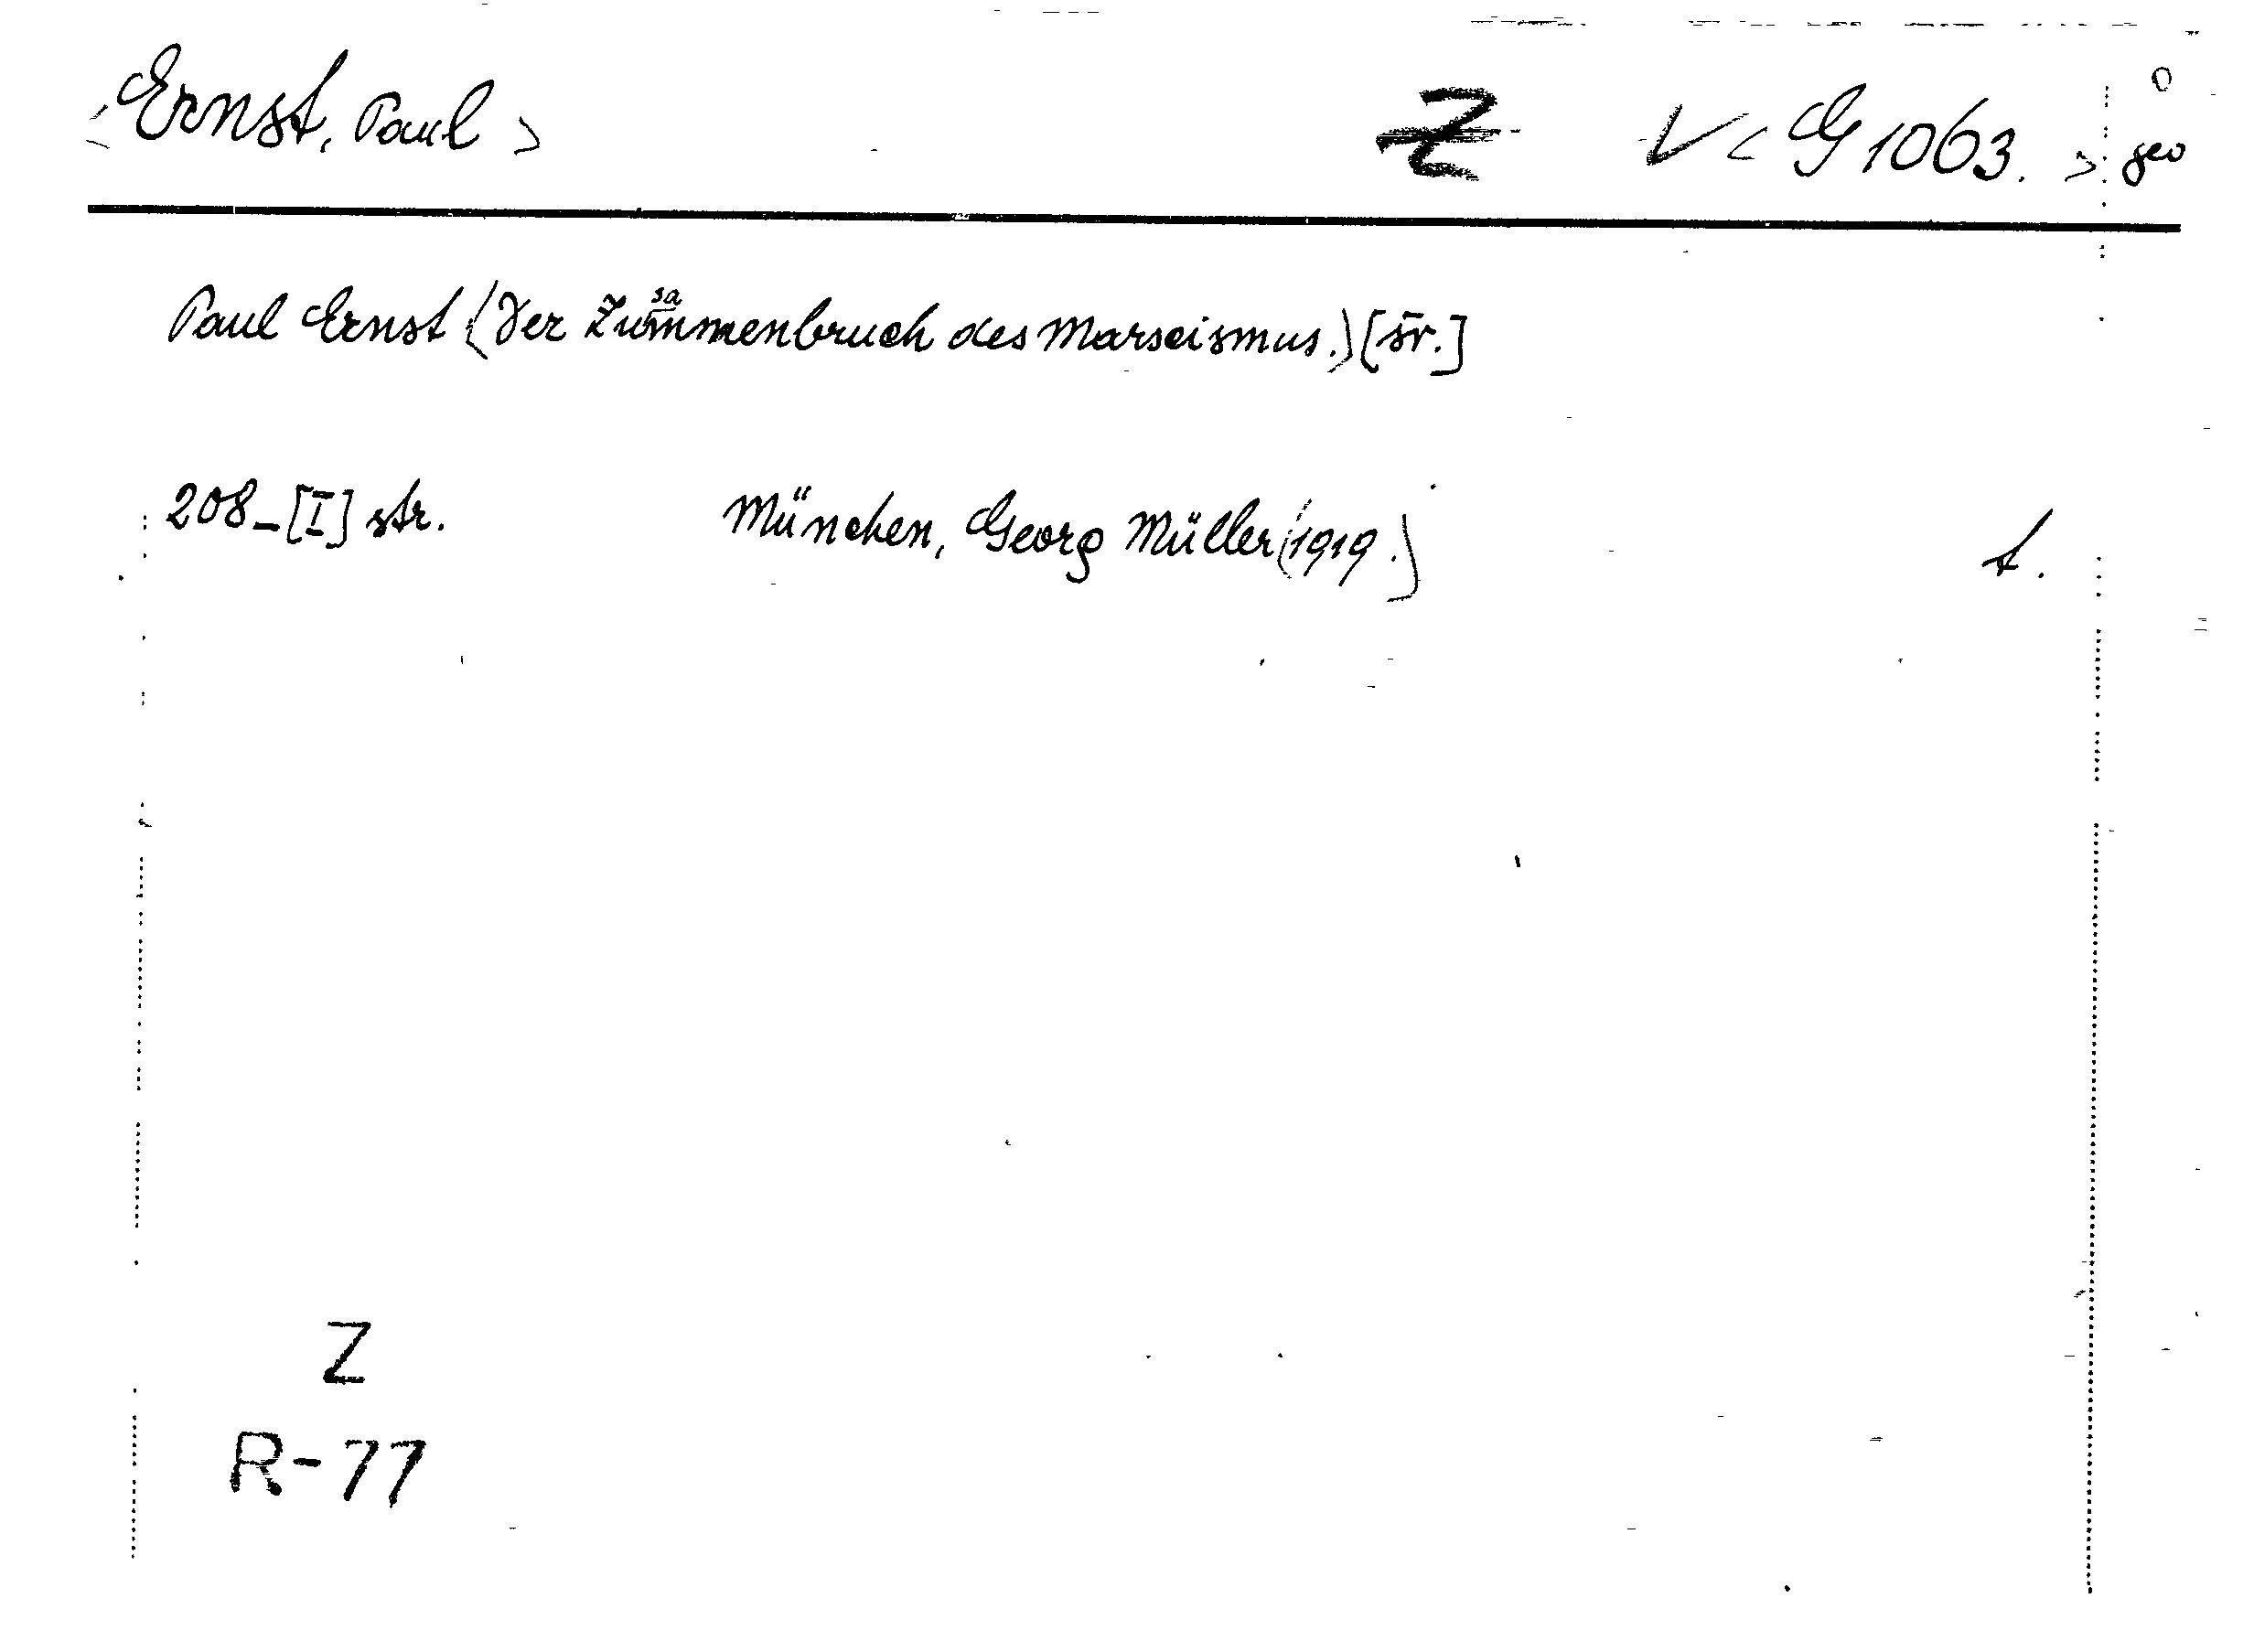 <Ernst, Paul> Z V < G 1063. > geo
Paul Ernst (Der Zusammenbruch des Marxismus.) [šv.]
208-[I] str. München, Georg Müller (1919.) f.
Z
R-77